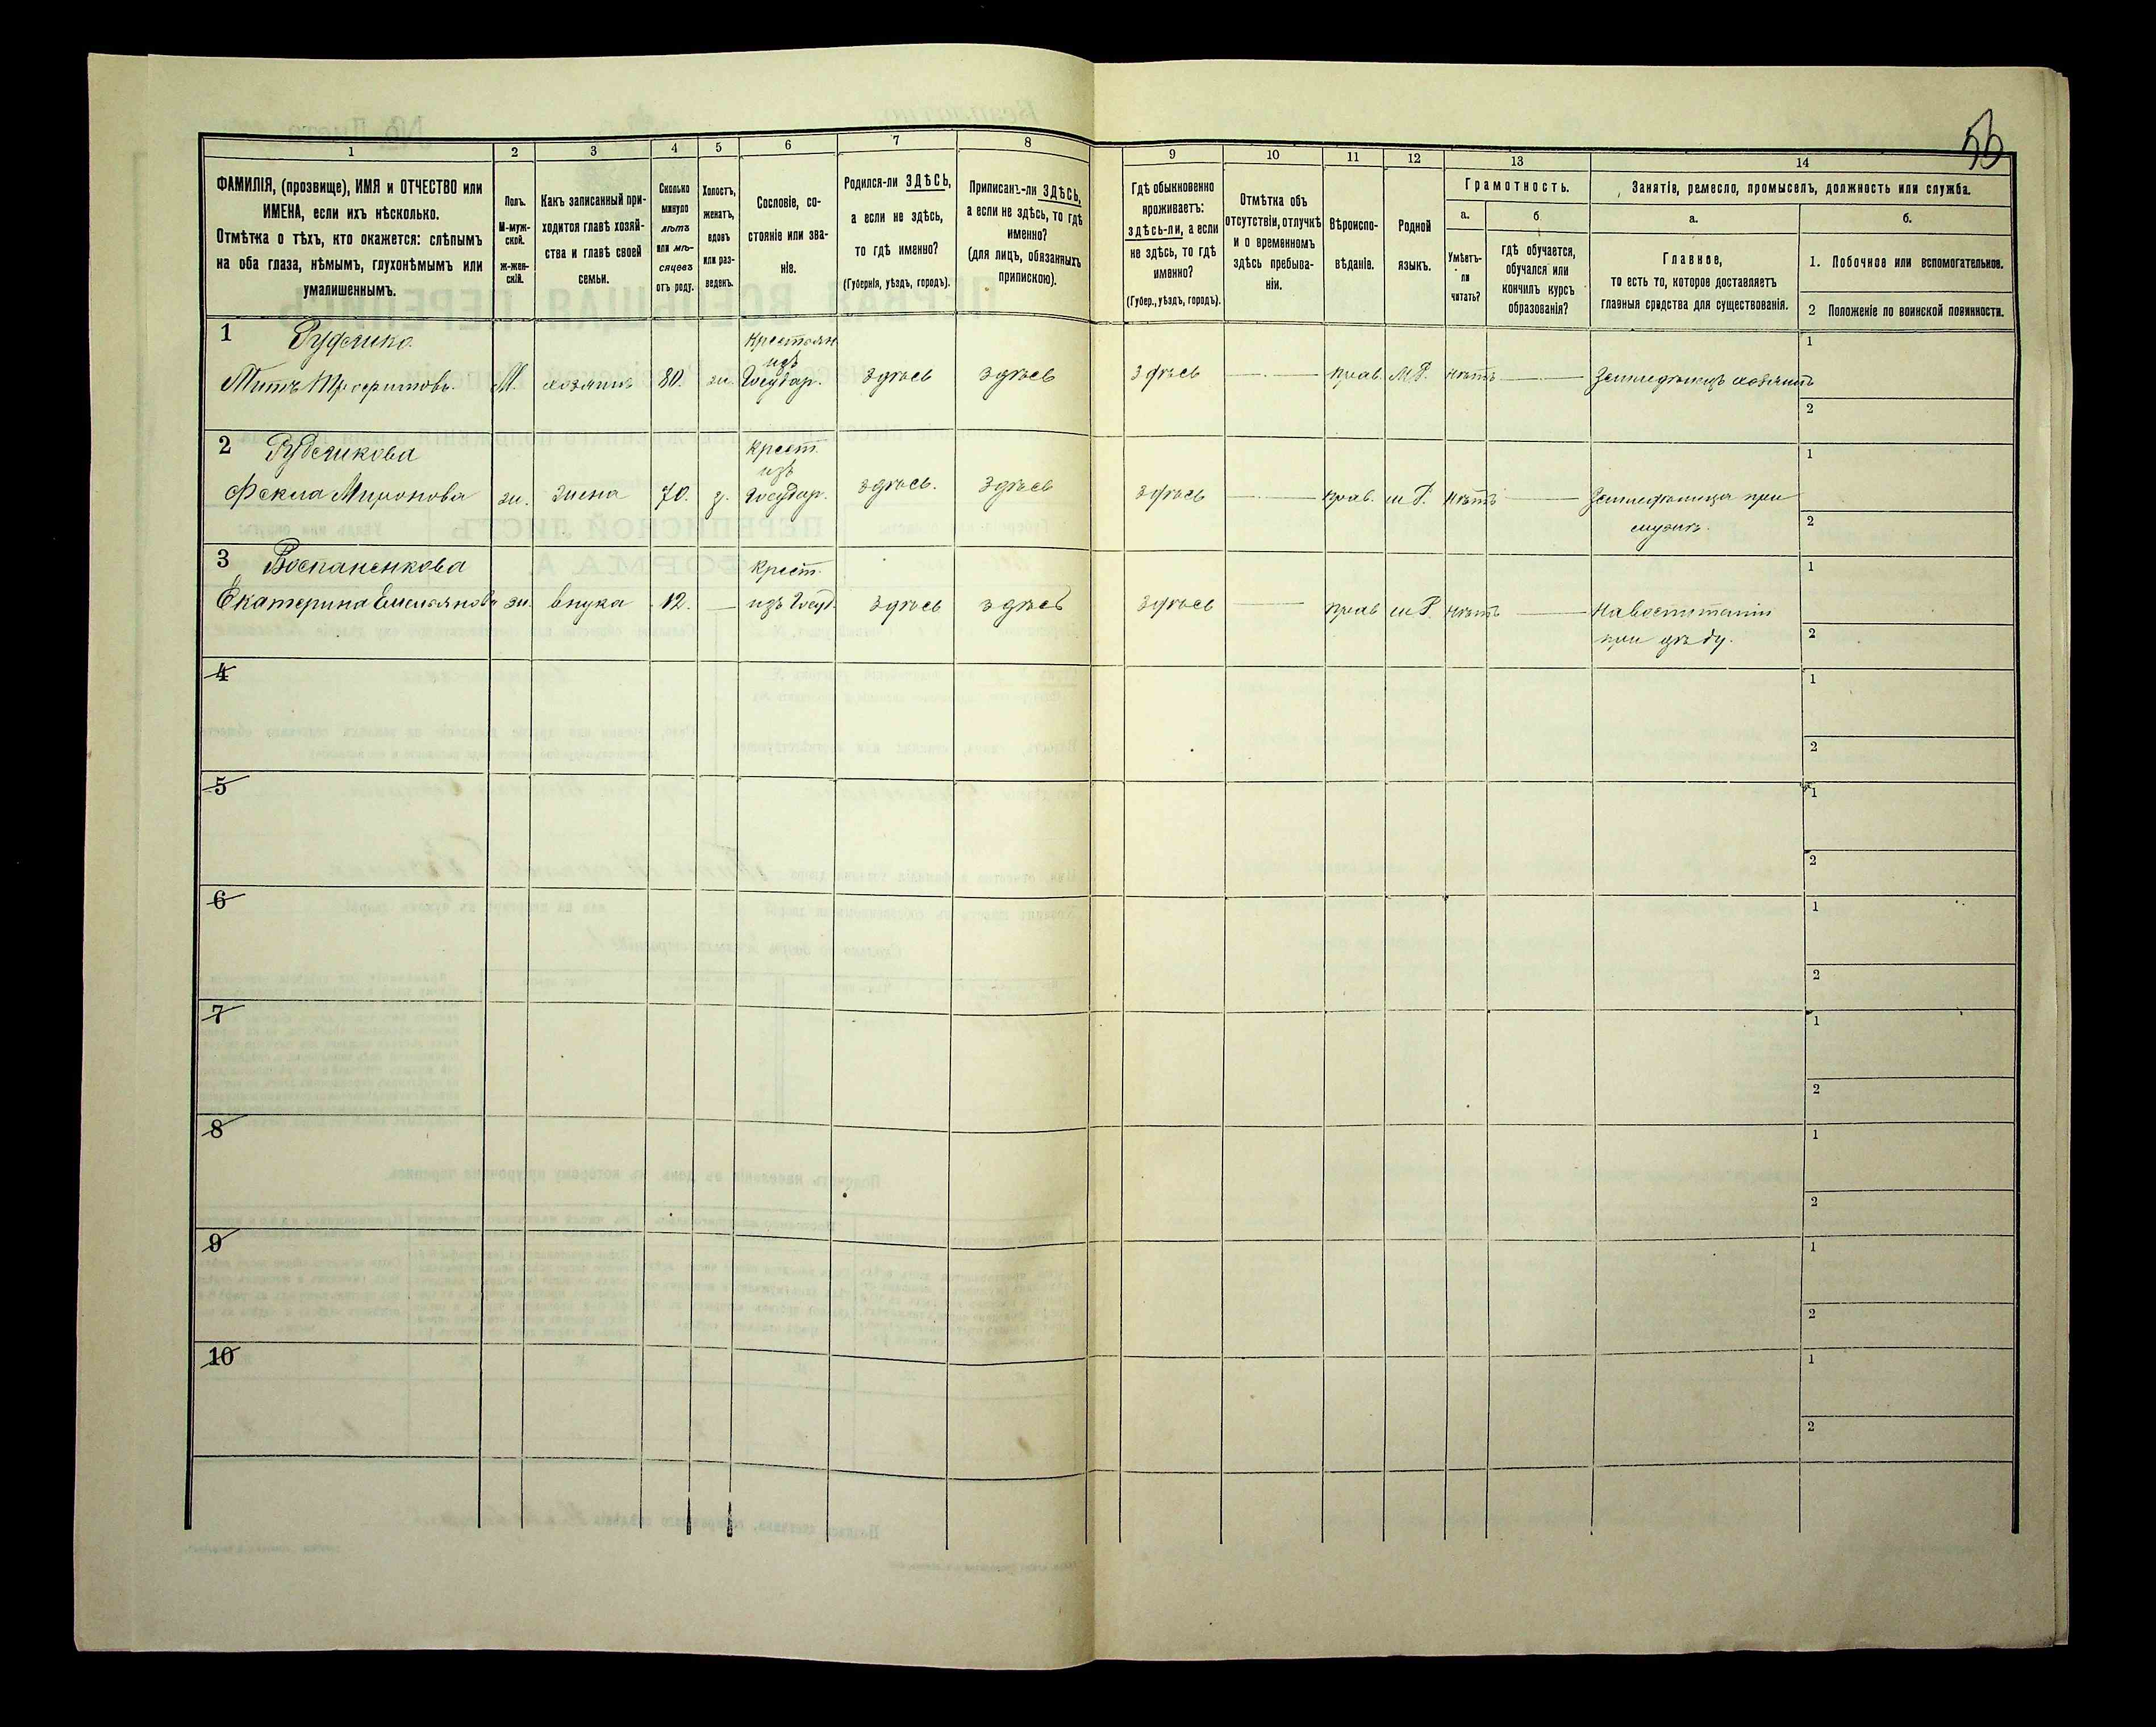 1 2 3 4 5 6 7 8 9 10 11 12 13 14
ФАМИЛІЯ, (прозвище), ИМЯ и ОТЧЕСТВО или
ИМЕНА, если ихъ нѣсколько.
Отмѣтка о тѣхъ, кто окажется: слѣпымъ
на оба глаза, нѣмымъ, глухонѣмымъ или
умалишеннымъ.
Полъ.
М-муж-
ской.
ж-жен-
скій.
Какъ записанный при-
ходится главѣ хозяй-
ства и главѣ своей
семьи.
Сколько
минуло
лѣтъ
или мѣ-
сяцевъ
отъ роду.
Холостъ,
женатъ,
вдовъ
или раз-
веденъ.
Сословіе, со-
стояніе или зва-
ніе.
Родился-ли ЗДѢСЬ,
а если не здѣсь,
то гдѣ именно?
(Губернія, уѣздъ, городъ).
Приписанъ-ли ЗДѢСЬ,
а если не здѣсь, то гдѣ
именно?
(для лицъ, обязанныхъ
припискою).
Гдѣ обыкновенно
проживаетъ:
здѣсь-ли, а если
не здѣсь, то гдѣ
именно?
(Губер., уѣздъ, городъ).
Отмѣтка объ
отсутствіи, отлучкѣ
и о временномъ
здѣсь пребыва-
ніи.
Вѣроиспо-
вѣданіе.
Родной
языкъ.
Грамотность.
а.
Умѣетъ-
ли
читать?
б.
гдѣ обучается,
обучался или
кончилъ курсъ
образованія?
Занятіе, ремесло, промыселъ, должность или служба.
а.
Главное,
то есть то, которое доставляетъ
главныя средства для существованія.
б.
1. Побочное или вспомогательное.
2 Положеніе по воинской повинности.
1
Крестьян
изъ
Титъ М. хозяинъ 80. ж. Государ. здѣсь здѣсь здѣсь прав. М.Р. нѣтъ Земледѣлецъ хозяинъ
1
2
2 Крест.
изъ
Фекла Миронова ж. жена 70. з. Государ. здѣсь. здѣсь здѣсь прав. м Р. нѣтъ Земледѣлица при
мужѣ.
1
2
3 Крест.
Екатерина Емельянова ж. внука 12. — изъ Госуд. здѣсь здѣсь здѣсь прав м Р. нѣтъ На воспитаніи
при дѣду.
1
2
4
1
2
5
1
2
6
1
2
7
1
2
8
1
2
9
1
2
10
1
2